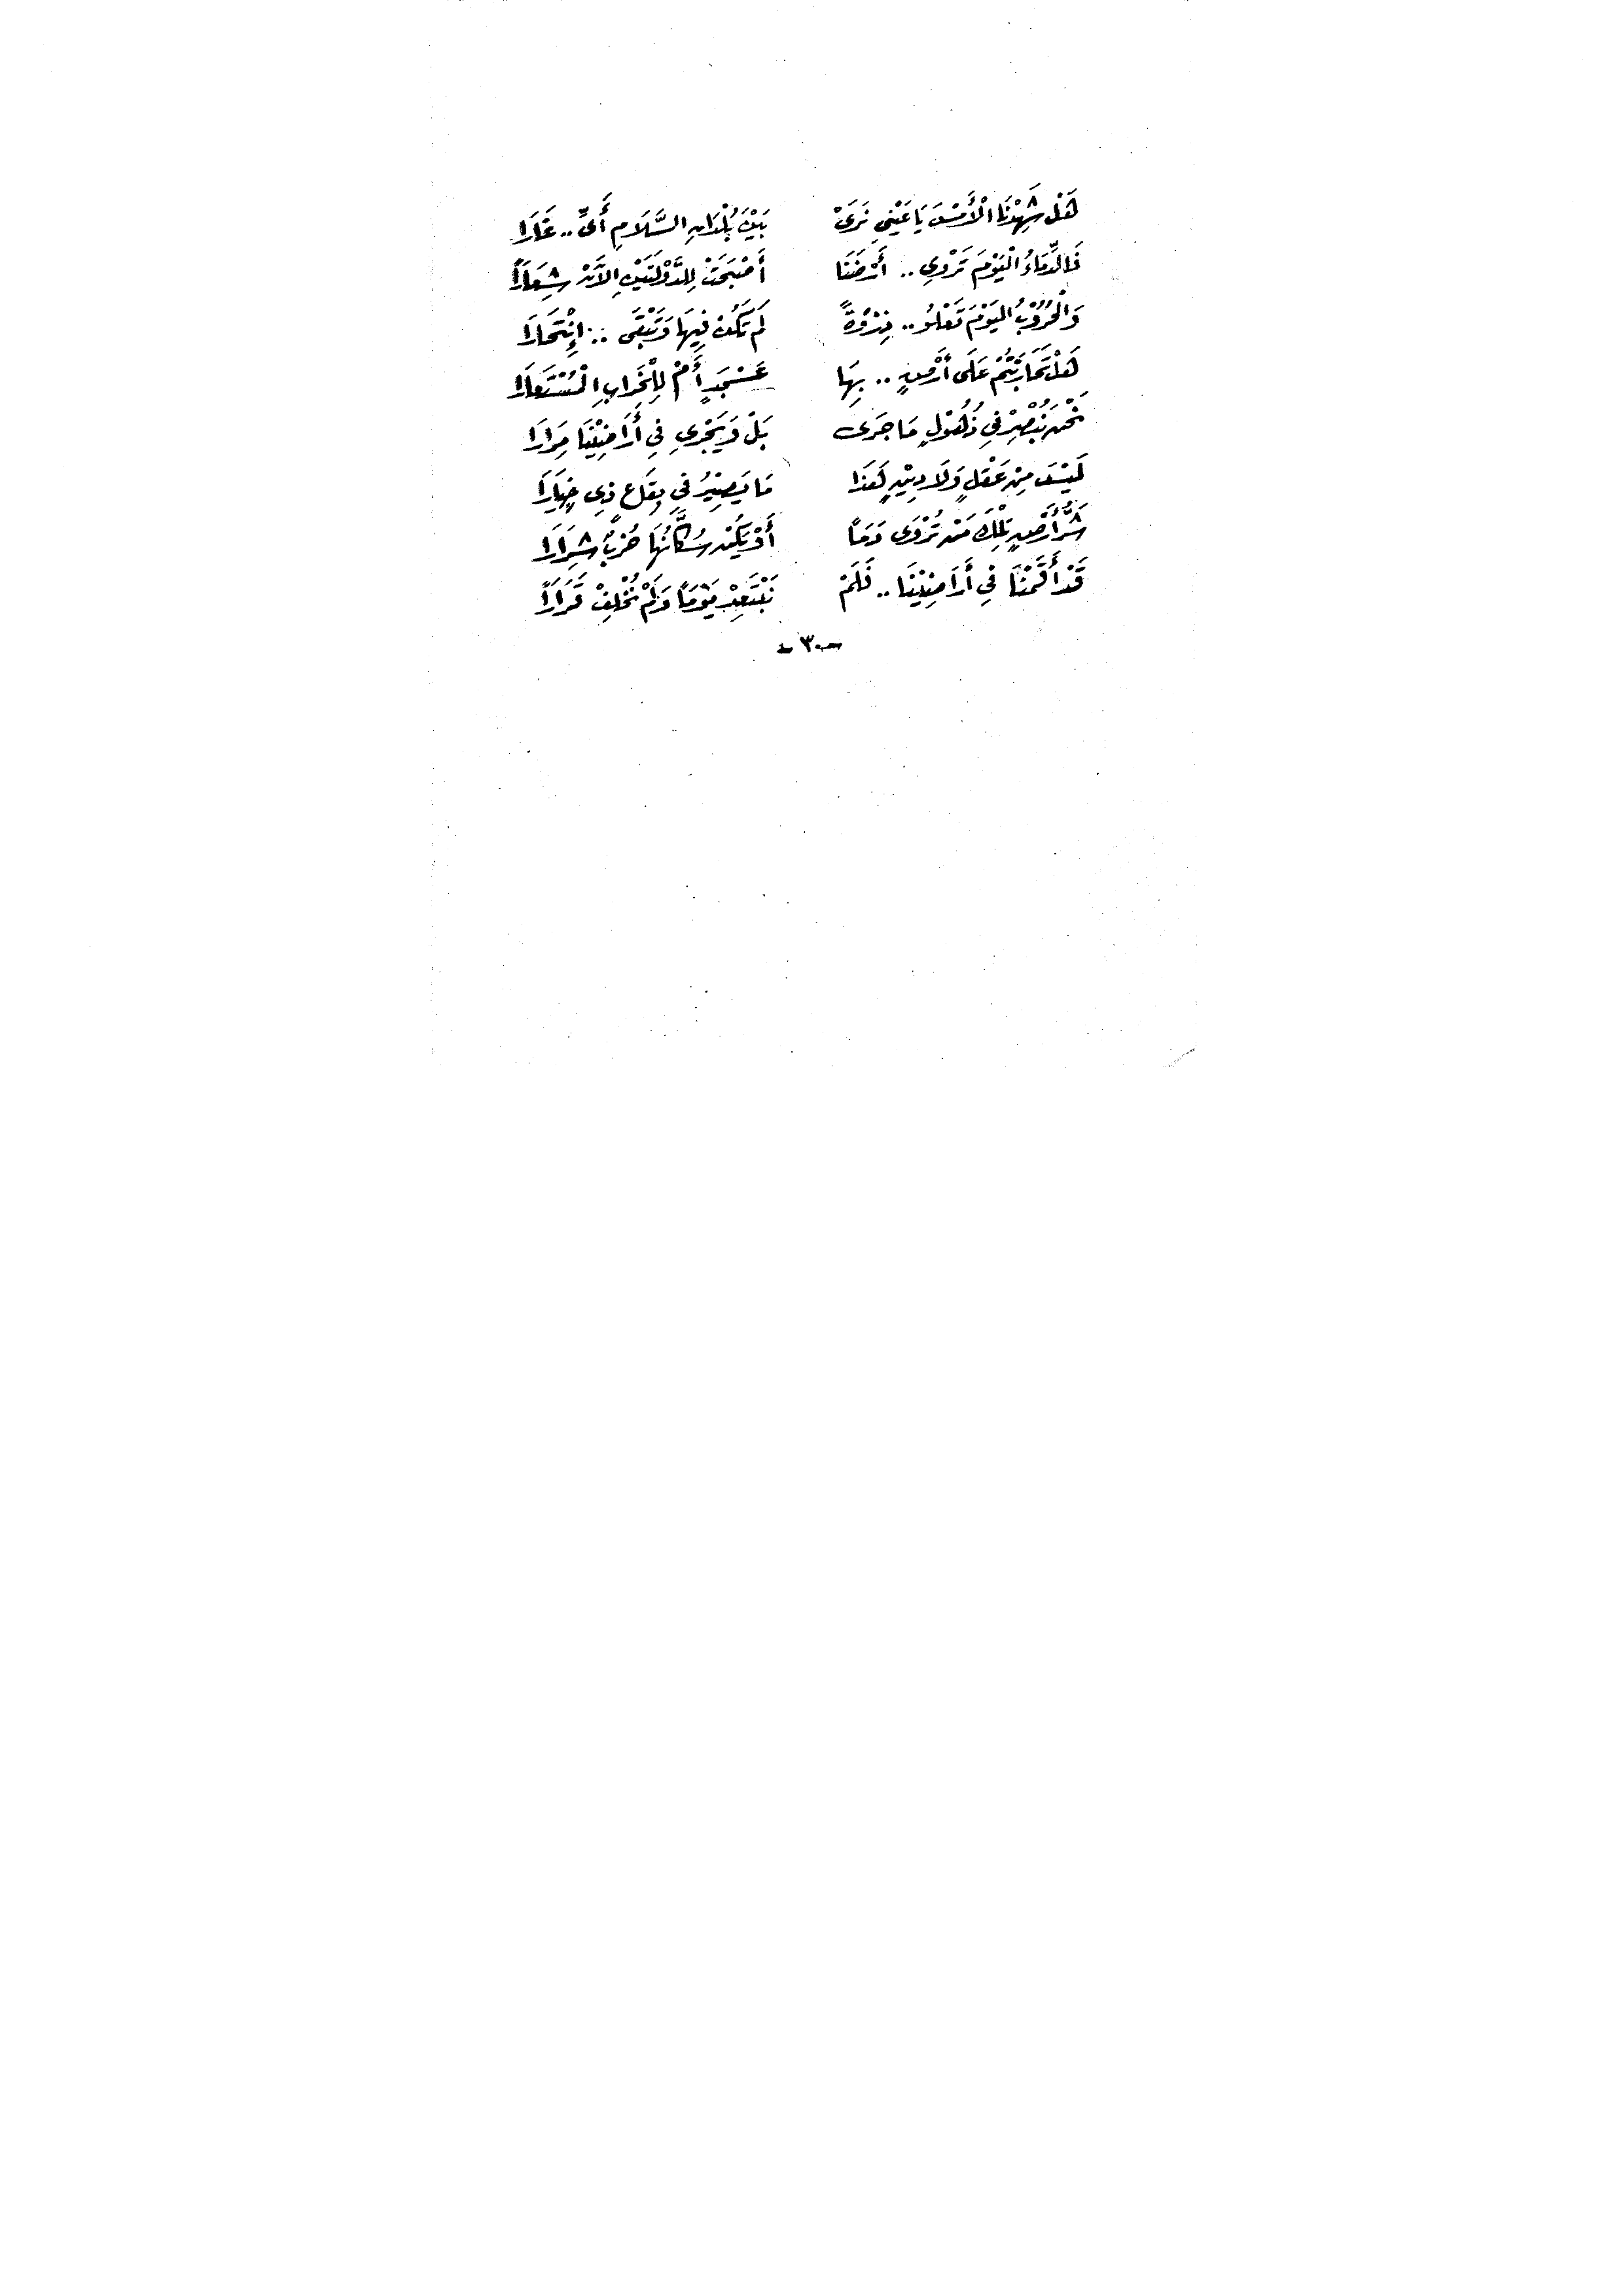 هَلْ شَهِدْنَا الْأَمْسَ يَا عَيْنِي نَرَىْ بَيْنَ بُلْدَانِ السَّلَامِ أَىَّ .. غَارَا
فَالدِّمَاءُ الْيَوْمَ تَرْوِي .. أَرْضَنَا أَصْبَحَتْ لِلدَّوْلَتَيْنِ الآنَ شِعَاراً
وَالْحُرُوْبُ اليَوْمَ تَعْلُو .. ذِرْوَةً لَمْ تَكُنْ فِيهَا وَتَبْقَى .. إِنْتِحَارَا
هَلْ تَحَارَبْتُمْ عَلَى أَرْضٍ .. بِهَا عَسْجَدٍ أَمْ لِلْخَرَابِ الْمُسْتَعَارَا
نَحْنُ نُبْصِرْ فِي ذُهُوْلٍ مَا جَرَى بَلْ وَيَجْرِي فِي أَرَاضِيْنَا مِرَارَا
لَيْسَ مِنْ عَقْلٍ وَلَا دِيْنٍ لَهَذَا مَا يَصِيْرُ فِي بِقَاعٍ ذِي خِيَارَا
شَرُّ أَرْضٍ تِلْكَ مَنْ تُرْوَى دَمَاً أَوْ يَكُنْ سُكَّانُهَا حُزْبٌ شِرَارَا
قَدْ أَقَمْنَا فِي أَرَاضِيْنَا .. فَلَمْ نَبْتَعِدْ يَوْمَاً وَلَمْ نُخْلِفْ قَرَارَاً
- ٣٠ -